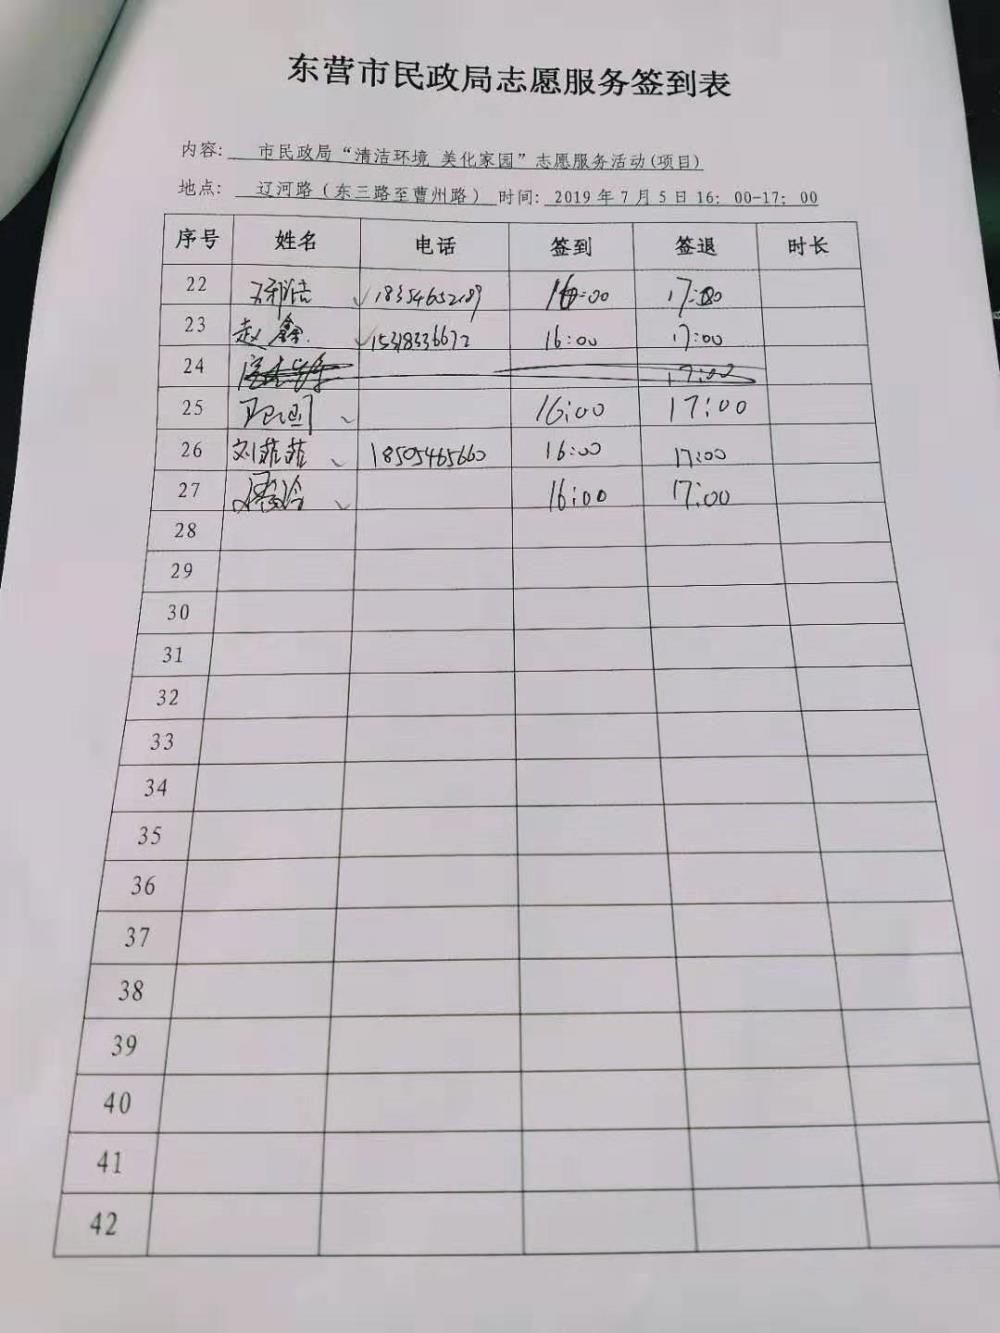 东营市民政局志愿服务签到表
内容: 市民政局“清洁环境 美化家园”志愿服务活动(项目)
地点: 辽河路（东三路至曹州路） 时间: 2019 年 7 月 5 日 16：00-17：00
序号 姓名 电话 签到 签退 时长
22 18354652189 16:00 17:00
23 赵鑫 15318336672 16:00 17:00
24 17:00
25 16:00 17:00
26 刘菲菲 18505465660 16:00 17:00
27 16:00 17:00
28
29
30
31
32
33
34
35
36
37
38
39
40
41
42